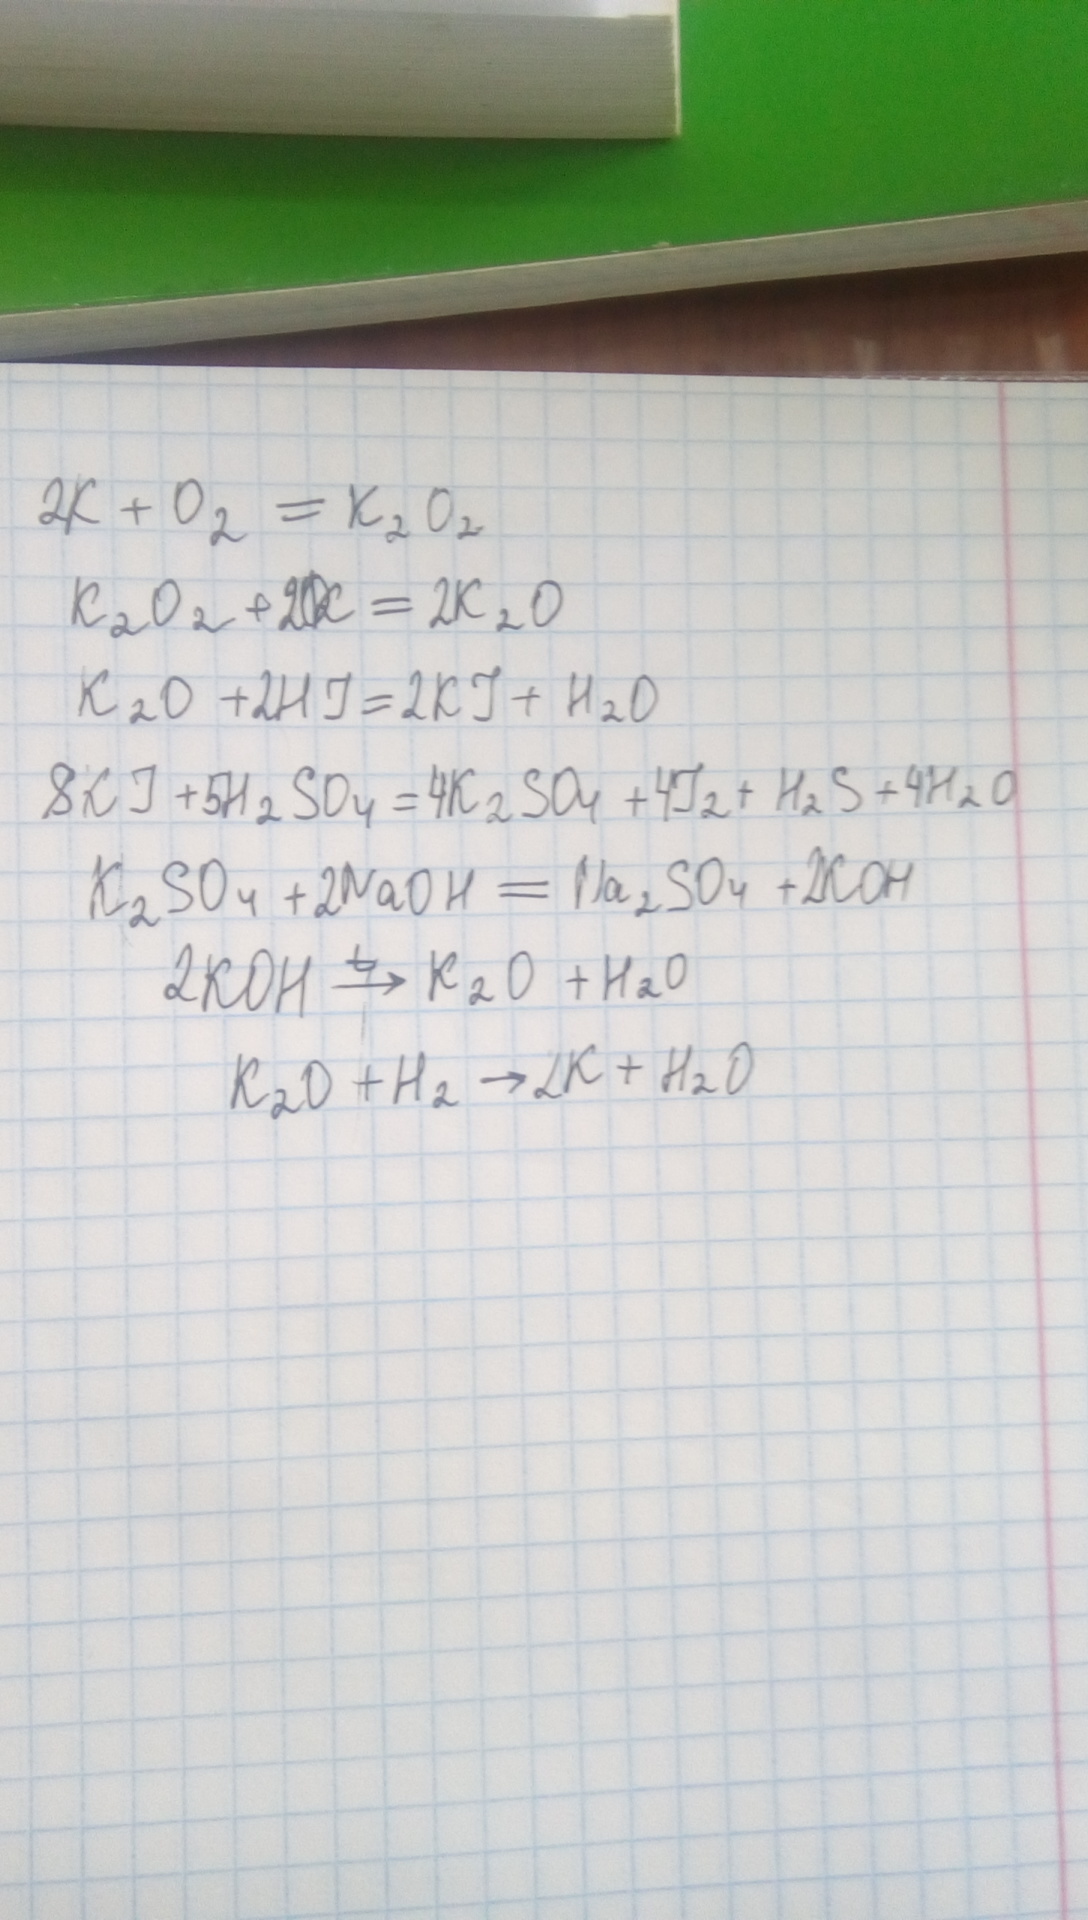 2K + O₂ = K₂O₂
K₂O₂ + 2K = 2K₂O
K₂O + 2HJ = 2KJ + H₂O
8KJ + 5H₂SO₄ = 4K₂SO₄ + 4J₂ + H₂S + 4H₂O
K₂SO₄ + 2NaOH = Na₂SO₄ + 2KOH
2KOH →ᵗ K₂O + H₂O
K₂O + H₂ → 2K + H₂O